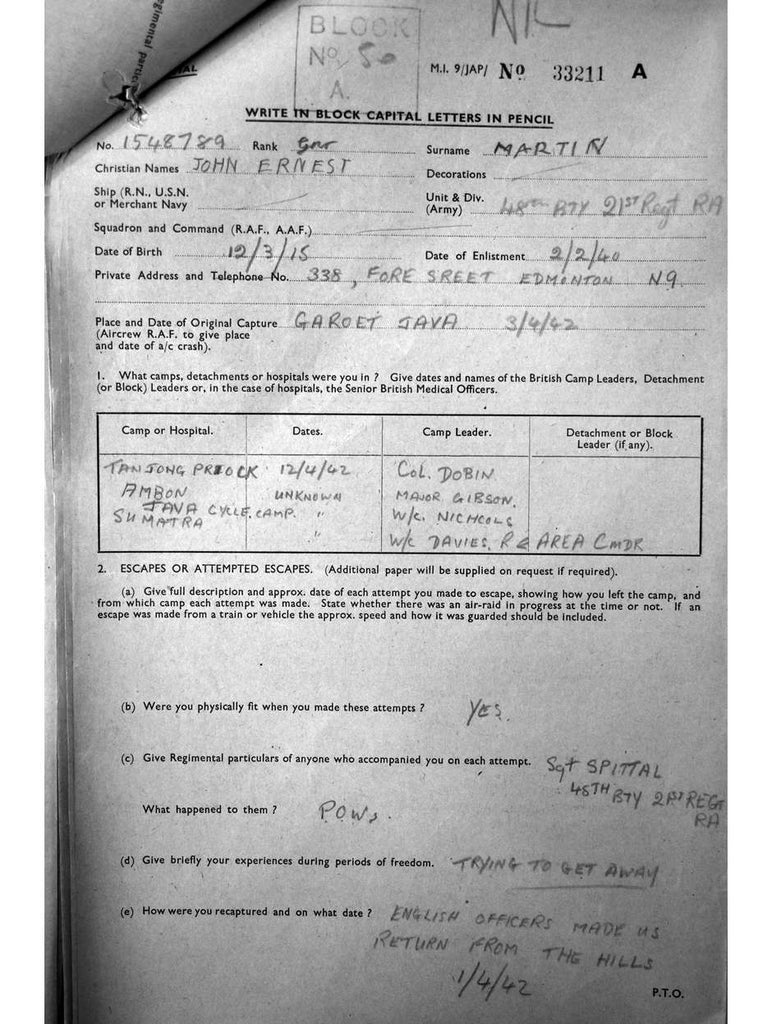 NIL
BLOCK
No 50
A.
M.I. 9/JAP/ No 33211 A
WRITE IN BLOCK CAPITAL LETTERS IN PENCIL
No. 1548789 Rank Gnr Surname MARTIN
Christian Names JOHN ERNEST Decorations
Ship (R.N., U.S.N. or Merchant Navy
Unit & Div. (Army) 48TH BTY 21ST Regt RA
Squadron and Command (R.A.F., A.A.F.)
Date of Birth 12/3/15 Date of Enlistment 2/2/40
Private Address and Telephone No. 338, FORE SREET EDMONTON N9.
Place and Date of Original Capture GAROET JAVA 3/4/42
(Aircrew R.A.F. to give place
and date of a/c crash).
1. What camps, detachments or hospitals were you in ? Give dates and names of the British Camp Leaders, Detachment
(or Block) Leaders or, in the case of hospitals, the Senior British Medical Officers.
Camp or Hospital. Dates. Camp Leader. Detachment or Block
Leader (if any).
TANJONG PRIOCK 12/4/42 COL. DOBIN
AMBON UNKNOWN MAJOR GIBSON.
JAVA CYCLE CAMP. " W/C. NICHCOLS
SUMATRA " W/C DAVIES. R & AREA CMDR
2. ESCAPES OR ATTEMPTED ESCAPES. (Additional paper will be supplied on request if required).
(a) Give full description and approx. date of each attempt you made to escape, showing how you left the camp, and
from which camp each attempt was made. State whether there was an air-raid in progress at the time or not. If an
escape was made from a train or vehicle the approx. speed and how it was guarded should be included.
(b) Were you physically fit when you made these attempts ? YES.
(c) Give Regimental particulars of anyone who accompanied you on each attempt. Sgt SPITTAL
48TH BTY 21ST REGT
RA
What happened to them ? POWs.
(d) Give briefly your experiences during periods of freedom. TRYING TO GET AWAY
(e) How were you recaptured and on what date ? ENGLISH OFFICERS MADE US
RETURN FROM THE HILLS
1/4/42
P.T.O.